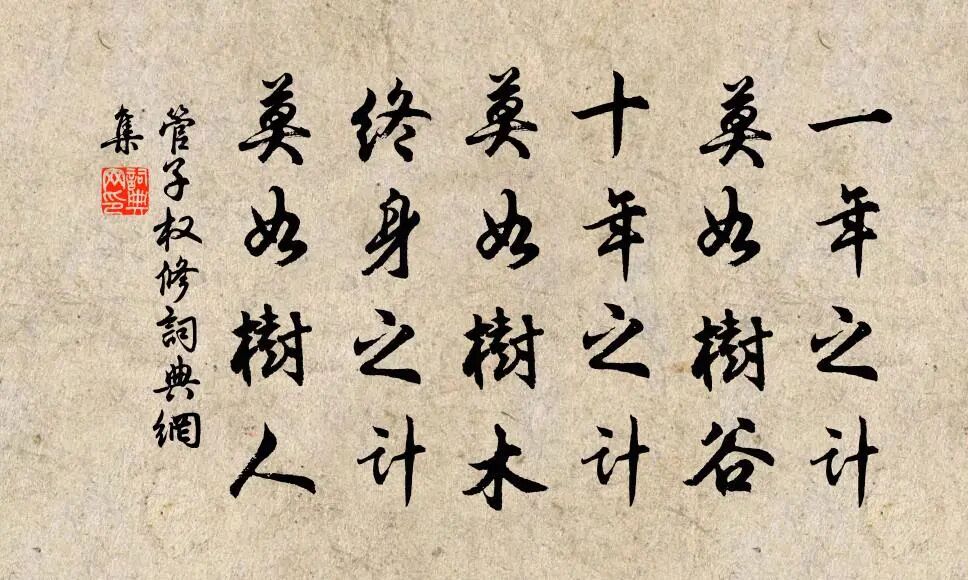 一年之计
莫如樹谷
十年之计
莫如樹木
终身之计
莫如樹人
管子权修詞典網
集
詞典
网印